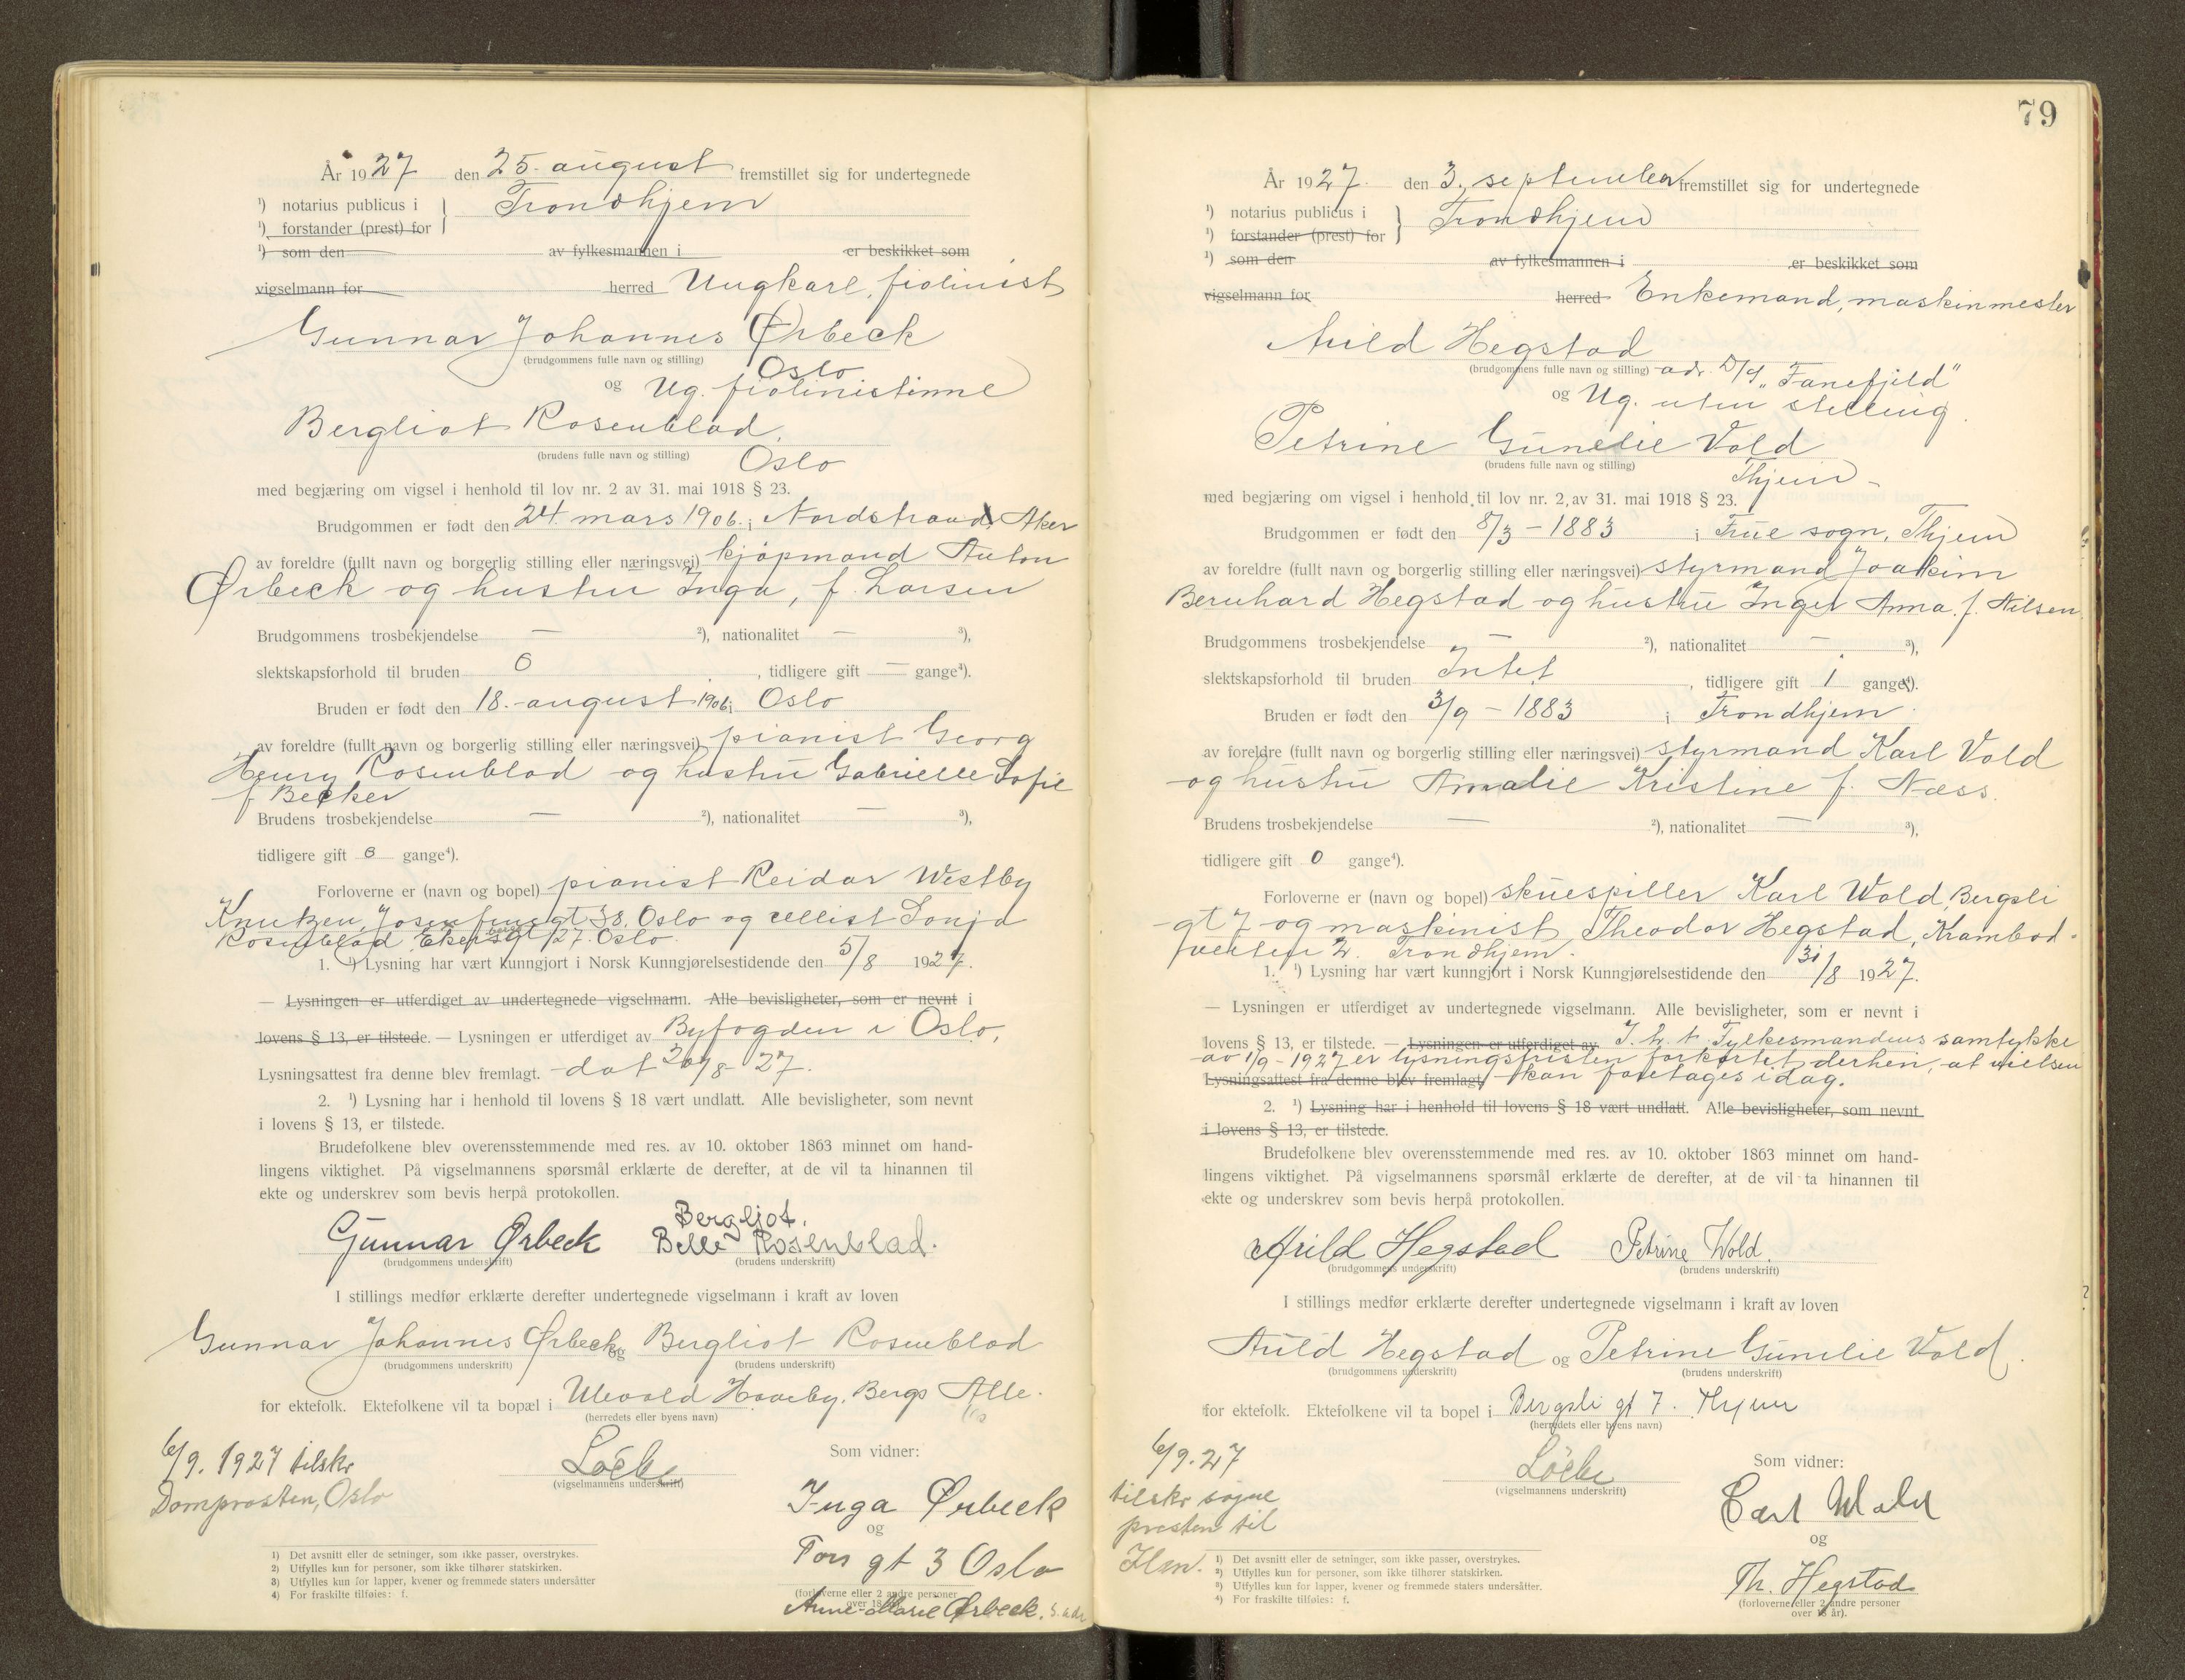 År 1927 den 25. august fremstillet sig for undertegnede
¹) notarius publicus i } Trondhjem
¹) forstander (prest) for
¹) som den av fylkesmannen i er beskikket som
vigselmann for herred Ungkarl, fiolinist
Gunnar Johannes Ørbeck
(brudgommens fulle navn og stilling) Oslo
og Ug. fiolinistinne
Bergliot Rosenblad,
(brudens fulle navn og stilling) Oslo
med begjæring om vigsel i henhold til lov nr. 2 av 31. mai 1918 § 23.
Brudgommen er født den 24. mars 1906 i Nordstrand, Aker
av foreldre (fullt navn og borgerlig stilling eller næringsvei) kjøpmand Anton
Ørbeck og hustru Inga, f. Larsen
Brudgommens trosbekjendelse — ²), nationalitet — ³),
slektskapsforhold til bruden 0 , tidligere gift — gange⁴).
Bruden er født den 18. august 1906 i Oslo
av foreldre (fullt navn og borgerlig stilling eller næringsvei) pianist Georg
Henry Rosenblad og hustru Gabrielle Sofie
f Becker
Brudens trosbekjendelse — ²), nationalitet — ³),
tidligere gift 0 gange⁴).
Forloverne er (navn og bopel) pianist Reidar Westby
Knutzen, Josefinesgt 38, Oslo og cellist Sonja
Rosenblad Ekersbergsgt 27. Oslo.
1. ¹) Lysning har vært kunngjort i Norsk Kunngjørelsestidende den 5/8 1927.
— Lysningen er utferdiget av undertegnede vigselmann. Alle bevisligheter, som er nevnt i
lovens § 13, er tilstede. — Lysningen er utferdiget av Byfogden i Oslo,
Lysningsattest fra denne blev fremlagt. dat 20/8 27.
2. ¹) Lysning har i henhold til lovens § 18 vært undlatt. Alle bevisligheter, som nevnt
i lovens § 13, er tilstede.
Brudefolkene blev overensstemmende med res. av 10. oktober 1863 minnet om hand-
lingens viktighet. På vigselmannens spørsmål erklærte de derefter, at de vil ta hinannen til
ekte og underskrev som bevis herpå protokollen.
Bergljot.
Gunnar Ørbeck Belle Rosenblad.
(brudgommens underskrift) (brudens underskrift)
I stillings medfør erklærte derefter undertegnede vigselmann i kraft av loven
Gunnar Johannes Ørbeck og Bergliot Rosenblad
(brudgommens underskrift) (brudens underskrift)
for ektefolk. Ektefolkene vil ta bopæl i Ulevold Haveby, Bergs Alle
(herredets eller byens navn)
6/9. 1927 tilskr
Domprosten, Oslo
(vigselmannens underskrift)
Som vidner:
Inga Ørbeck
og
Tors gt 3 Oslo
(forloverne eller 2 andre personer
over 18 år).
Anne-Marie Ørbeck. s. adr
1) Det avsnitt eller de setninger, som ikke passer, overstrykes.
2) Utfylles kun for personer, som ikke tilhører statskirken.
3) Utfylles kun for lapper, kvener og fremmede staters undersåtter
4) For fraskilte tilføies: f.
79
År 1927. den 3. september fremstillet sig for undertegnede
¹) notarius publicus i } Trondhjem
¹) forstander (prest) for
¹) som den av fylkesmannen i er beskikket som
vigselmann for herred Enkemand, maskinmester
Arild Hegstad
(brudgommens fulle navn og stilling) adr. D/S "Fanefjeld"
og Ug. uten stilling.
Petrine Gunelie Vold
(brudens fulle navn og stilling) Thjem
med begjæring om vigsel i henhold til lov nr. 2 av 31. mai 1918 § 23.
Brudgommen er født den 8/3 - 1883 i Frue sogn, Thjem
av foreldre (fullt navn og borgerlig stilling eller næringsvei) styrmand Joakim
Bernhard Hegstad og hustru Inger Anna f. Nilsen
Brudgommens trosbekjendelse — ²), nationalitet — ³),
slektskapsforhold til bruden Intet , tidligere gift 1 gange⁴).
Bruden er født den 3/9 - 1883 i Trondhjem
av foreldre (fullt navn og borgerlig stilling eller næringsvei) styrmand Karl Vold
og hustru Amalie Kristine f. Næss.
Brudens trosbekjendelse — ²), nationalitet — ³),
tidligere gift 0 gange⁴).
Forloverne er (navn og bopel) skuespiller Karl Wold, Bergsli
gt 7 og maskinist Theodor Hegstad, Krambod-
veiten 2. Trondhjem.
1. ¹) Lysning har vært kunngjort i Norsk Kunngjørelsestidende den 31/8 1927.
— Lysningen er utferdiget av undertegnede vigselmann. Alle bevisligheter, som er nevnt i
lovens § 13, er tilstede. — Lysningen er utferdiget av I. h. t. Fylkesmandens samtykke
av 1/9 - 1927 er lysningsfristen forkortet derhen, at vielsen
Lysningsattest fra denne blev fremlagt. kan foretages idag.
2. ¹) Lysning har i henhold til lovens § 18 vært undlatt. Alle bevisligheter, som nevnt
i lovens § 13, er tilstede.
Brudefolkene blev overensstemmende med res. av 10. oktober 1863 minnet om hand-
lingens viktighet. På vigselmannens spørsmål erklærte de derefter, at de vil ta hinannen til
ekte og underskrev som bevis herpå protokollen.
Arild Hegstad Petrine Wold.
(brudgommens underskrift) (brudens underskrift)
I stillings medfør erklærte derefter undertegnede vigselmann i kraft av loven
Arild Hegstad og Petrine Gunelie Vold.
(brudgommens underskrift) (brudens underskrift)
for ektefolk. Ektefolkene vil ta bopel i Bergsli gt 7. Thjem
(herredets eller byens navn)
6/9. 27
tilskr sogne
presten til
Ilen.
(vigselmannens underskrift)
Som vidner:
Carl Wold
og
Th. Hegstad
(forloverne eller 2 andre personer
over 18 år).
¹) Det avsnitt eller de setninger, som ikke passer, overstrykes.
²) Utfylles kun for personer, som ikke tilhører statskirken.
³) Utfylles kun for lapper, kvener og fremmede staters undersåtter.
⁴) For fraskilte tilføies: f.